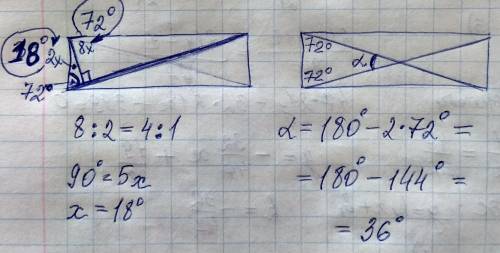 72°
18° 2x 8x
72°
72°
72° α
8:2=4:1
90°=5x
x=18°
α=180°-2·72°=
=180°-144°=
=36°